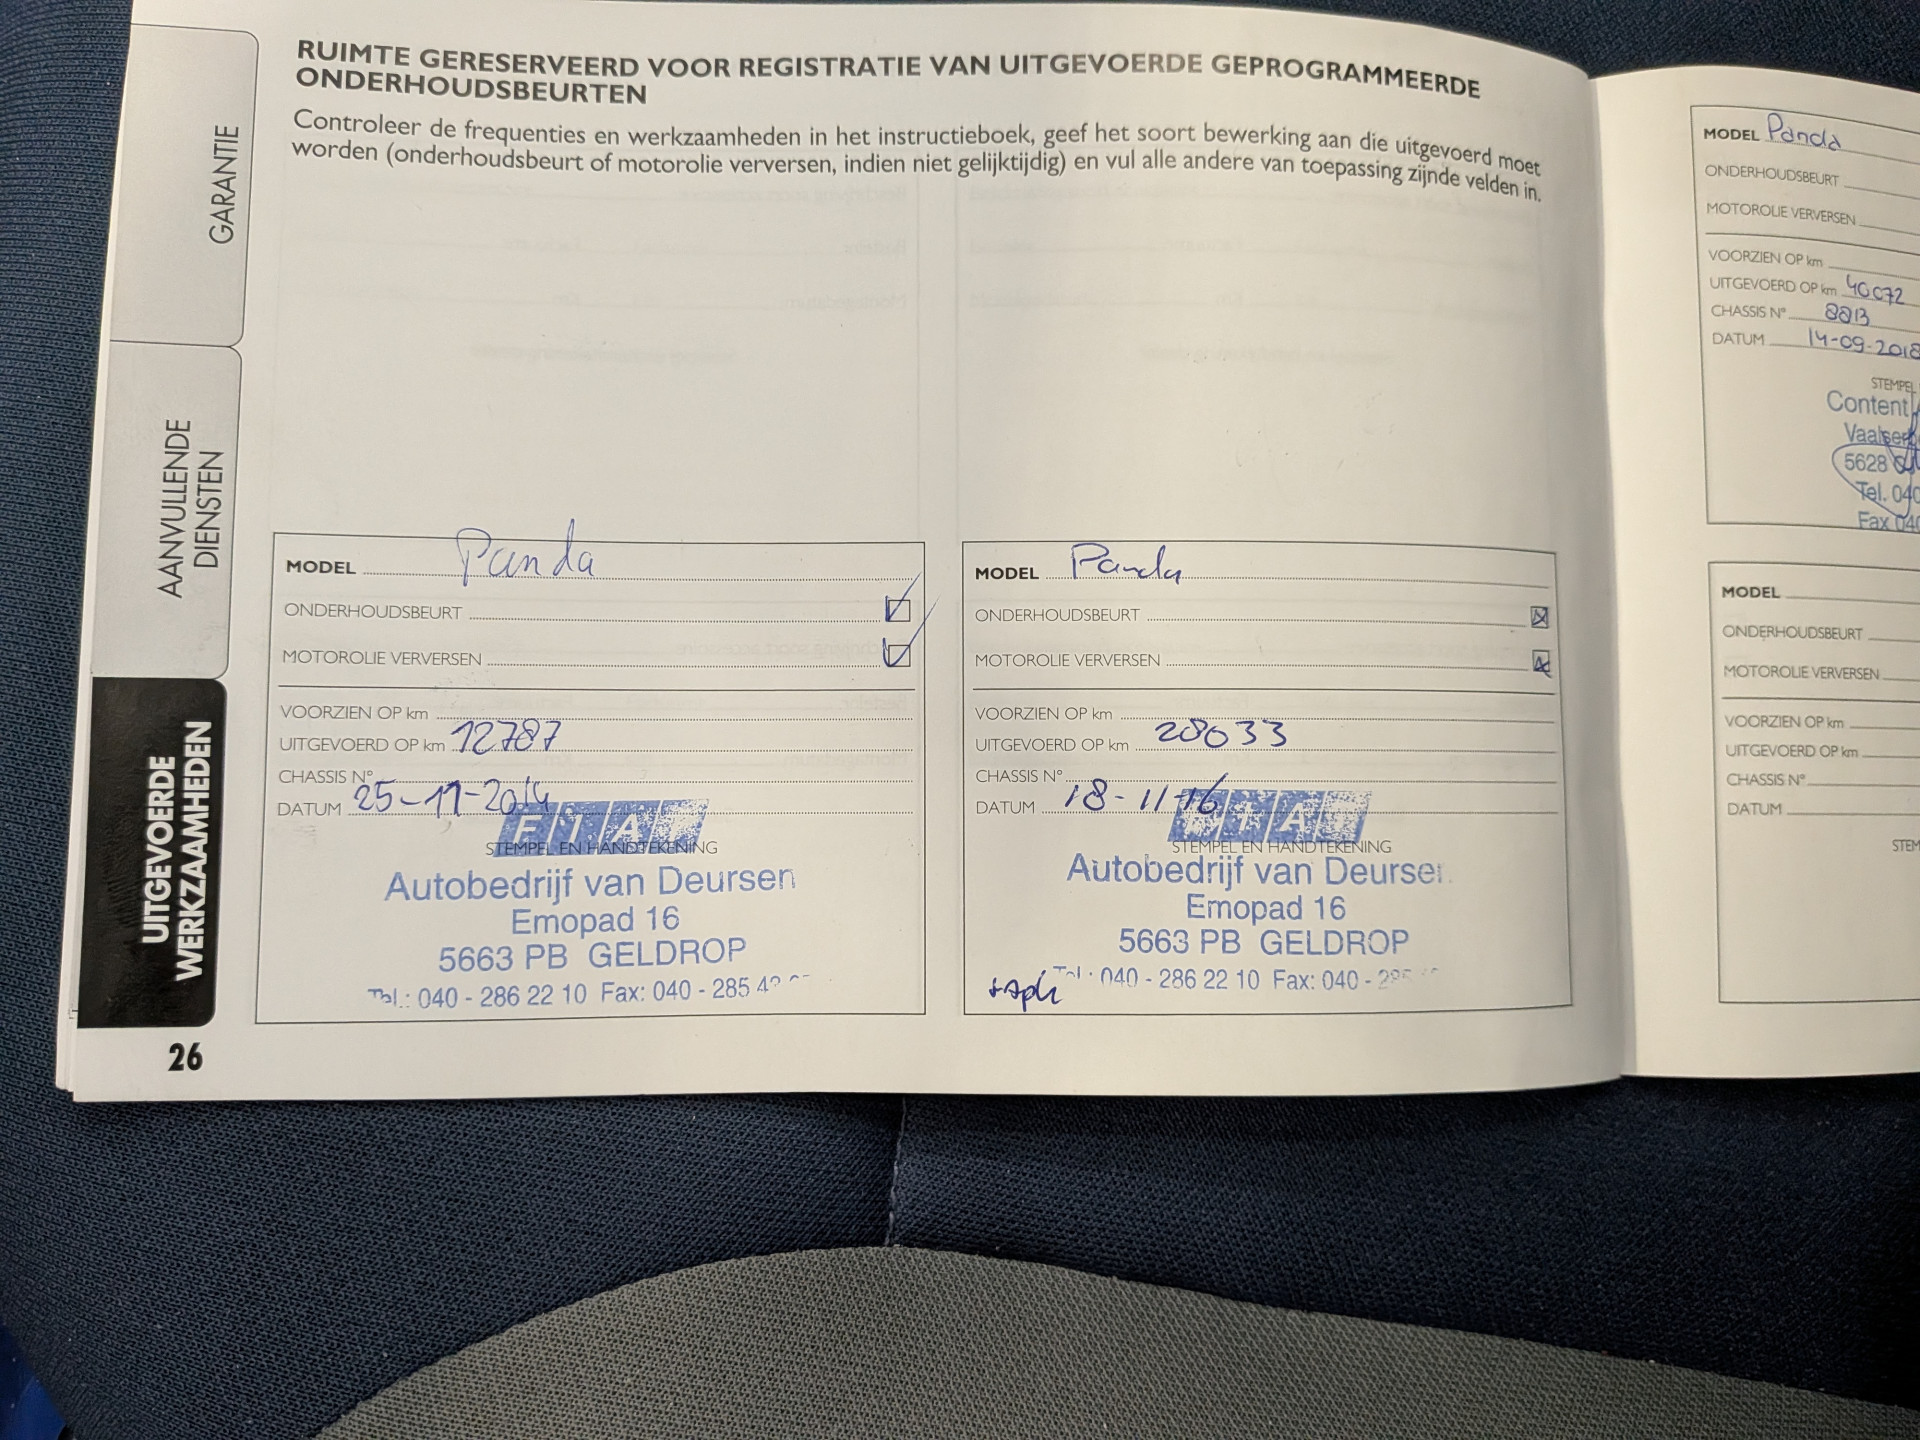 GARANTIE
AANVULLENDE
DIENSTEN
UITGEVOERDE
WERKZAAMHEDEN
26
RUIMTE GERESERVEERD VOOR REGISTRATIE VAN UITGEVOERDE GEPROGRAMMEERDE
ONDERHOUDSBEURTEN
Controleer de frequenties en werkzaamheden in het instructieboek, geef het soort bewerking aan die uitgevoerd moet
worden (onderhoudsbeurt of motorolie verversen, indien niet gelijktijdig) en vul alle andere van toepassing zijnde velden in.
MODEL Panda
ONDERHOUDSBEURT
MOTOROLIE VERVERSEN
VOORZIEN OP km
UITGEVOERD OP km 12787
CHASSIS N°
DATUM 25-11-2014
FIAT
STEMPEL EN HANDTEKENING
Autobedrijf van Deursen
Emopad 16
5663 PB GELDROP
Tel.: 040 - 286 22 10 Fax: 040 - 285
MODEL Panda
ONDERHOUDSBEURT
MOTOROLIE VERVERSEN
VOORZIEN OP km
UITGEVOERD OP km 28033
CHASSIS N°
DATUM 18-11-16
FIAT
STEMPEL EN HANDTEKENING
Autobedrijf van Deurse
Emopad 16
5663 PB GELDROP
Tel.: 040 - 286 22 10 Fax: 040 -
MODEL Panda
ONDERHOUDSBEURT
MOTOROLIE VERVERSEN
VOORZIEN OP km
UITGEVOERD OP km 40072
CHASSIS N° 8813
DATUM 14-09-2018
STEMPEL
Content
Vaalser
5628
Tel. 040
Fax 040
MODEL
ONDERHOUDSBEURT
MOTOROLIE VERVERSEN
VOORZIEN OP km
UITGEVOERD OP km
CHASSIS N°
DATUM
STEM